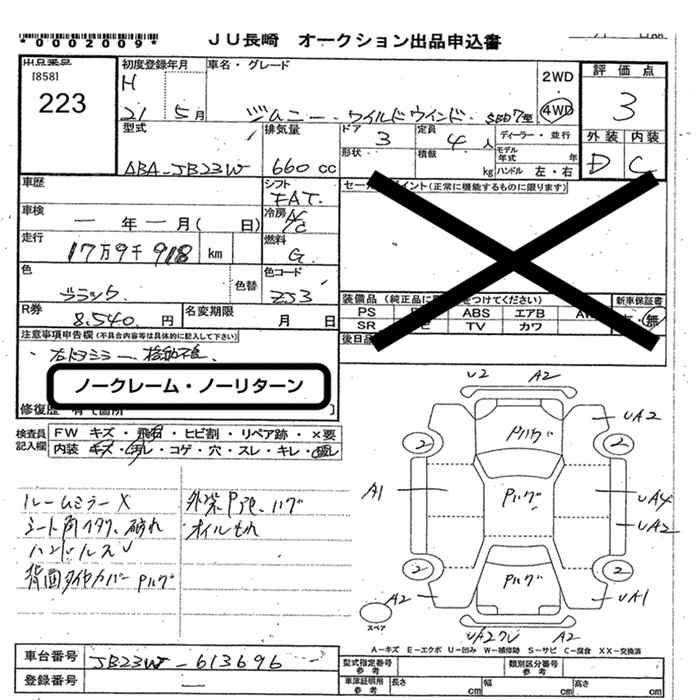 *0002009*
JU長崎 オークション出品申込書
出品番号
[858]
223
初度登録年月
H
21 5月
車名・グレード
ジムニー ワイルドウインド
2WD
4WD
評価点
3
外装 内装
D C
型式
ABA-JB23W
排気量
660cc
ドア
3
定員
4人
ディーラー・並行
形状
積載
kg
モデル
年式 年
ハンドル 左・右
車歴
シフト
FAT.
セールスポイント(正常に機能するものに限ります)
車検
一年一月( 日)
冷房
A/C
走行
17万9千918 km
燃料
G
色
ブラック
色替
色コード
ZJ3
装備品(純正品に をつけてください)
新車保証書
有・無
PS ABS エアB
SR TV カワ
R券
8,540.円
名変期限
月 日
後日品
注意事項申告欄(不具合内容等は具体的に記入して下さい)
左ドアミラー格納不良
ノークレーム・ノーリターン
修復歴
検査員
記入欄
FW キズ・飛石・ヒビ割・リペア跡・×要
内装 キズ・汚レ・コゲ・穴・スレ・キレ・破レ
ルームミラーX
シート角ヘタリ、破れ
ハンドルスレ
背面タイヤカバーPハゲ
外装P色、ハゲ
オイルもれ
U2 A2
Pハゲ
UA2
2 2
A1
Pハゲ
UA4
UA2
2 2
Pハゲ
A2
UA1
スペア
A2
A-キズ E-エクボ U-凹み W-補修跡 S-サビ C-腐食 XX-交換済
車台番号
JB23W-613696
登録番号
型式指定番号
参考
類別区分番号
参考
車庫証明用
参考
長さ cm 幅 cm 高さ cm